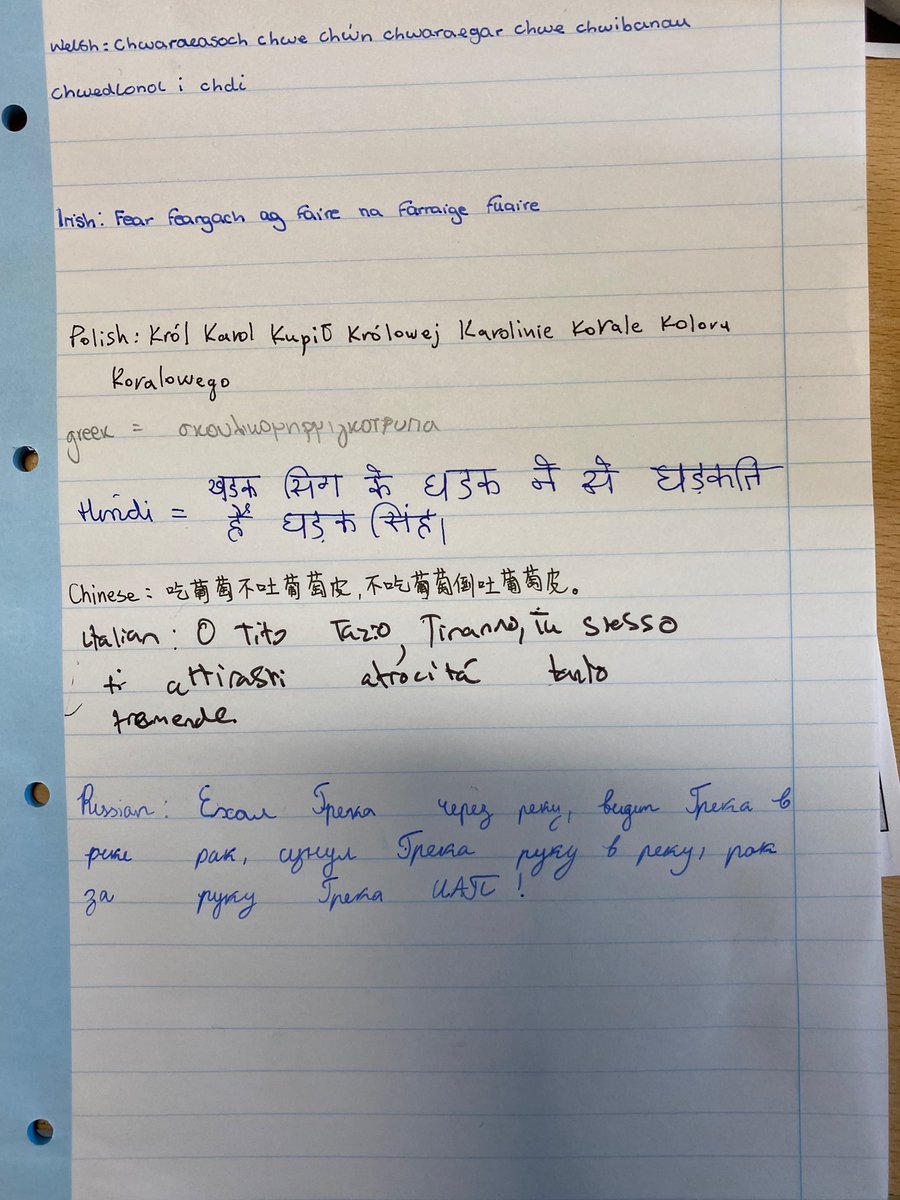 Welsh: Chwaraeasoch chwe chŵn chwaraegar chwe chwibanau
chwedlonol i chdi
Irish: Fear feargach ag faire na farraige fuaire
Polish: Król Karol Kupił Królowej Karolinie Korale Koloru
Koralowego
greek = σκουλικομηρμιγκοτρυπα
Hindi = खड़क सिंग के धड़क ने से धड़कति
हैं धड़क सिंह।
Chinese: 吃葡萄不吐葡萄皮,不吃葡萄倒吐葡萄皮。
Italian: O Tito Tazio, Tiranno, tu stesso
ti attirasti atrocitá tanto
tremende
Russian: Ехал Грека через реку, видит Грека в
реке рак, сунул Грека руку в реку, рак
за руку Грека ЦАП!